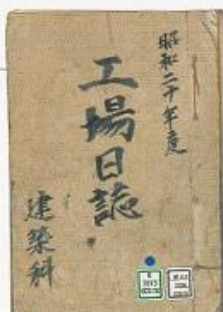 昭和二十年度
工場日誌
建築科